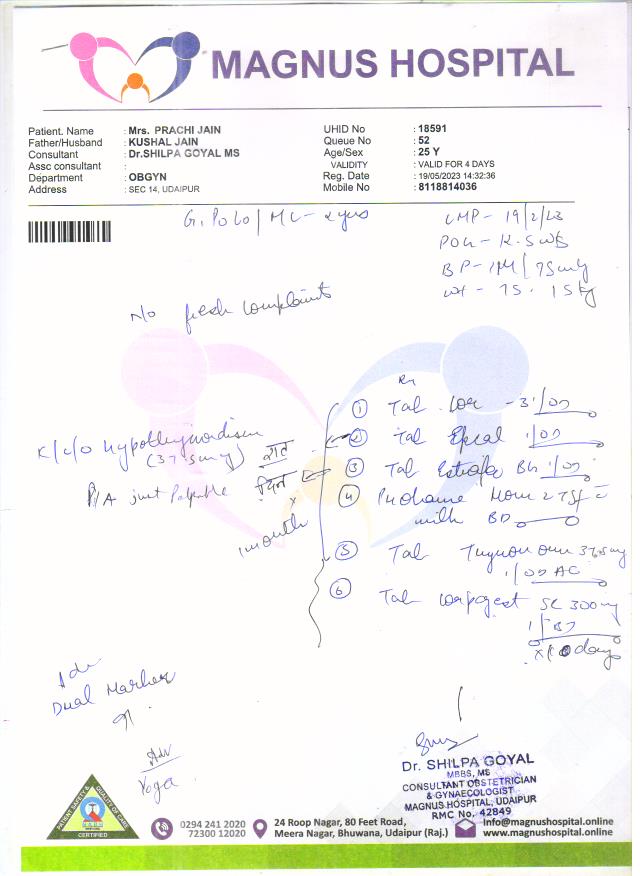 MAGNUS HOSPITAL
Patient. Name : Mrs. PRACHI JAIN
Father/Husband : KUSHAL JAIN
Consultant : Dr.SHILPA GOYAL MS
Assc consultant :
Department : OBGYN
Address : SEC 14, UDAIPUR
UHID No : 18591
Queue No : 52
Age/Sex : 25 Y
VALIDITY : VALID FOR 4 DAYS
Reg. Date : 19/05/2023 14:32:36
Mobile No : 8118814036
LMP - 19/2/23
BP -
wt - 75.15kg
No fresh complaints
K/c/o hypothyroidism
(37.5mg) रात
P/A just Palpable दिन
x
1 month
Rx
① Tab /OD
② Tab /OD
③ Tab /OD
④ 2 TSF c
milk BD
⑤ Tab 37.5mg
1/OD AC
⑥ Tab SR 300mg
1/BD
x 10 days
Adv
Dual Marker
Adv
Yoga
Dr. SHILPA GOYAL
MBBS, MS
CONSULTANT OBSTETRICIAN
& GYNAECOLOGIST
MAGNUS HOSPITAL, UDAIPUR
RMC No. 42849
PATIENT SAFETY & QUALITY OF CARE
CERTIFIED
0294 241 2020
72300 12020
24 Roop Nagar, 80 Feet Road,
Meera Nagar, Bhuwana, Udaipur (Raj.)
Info@magnushospital.online
www.magnushospital.online